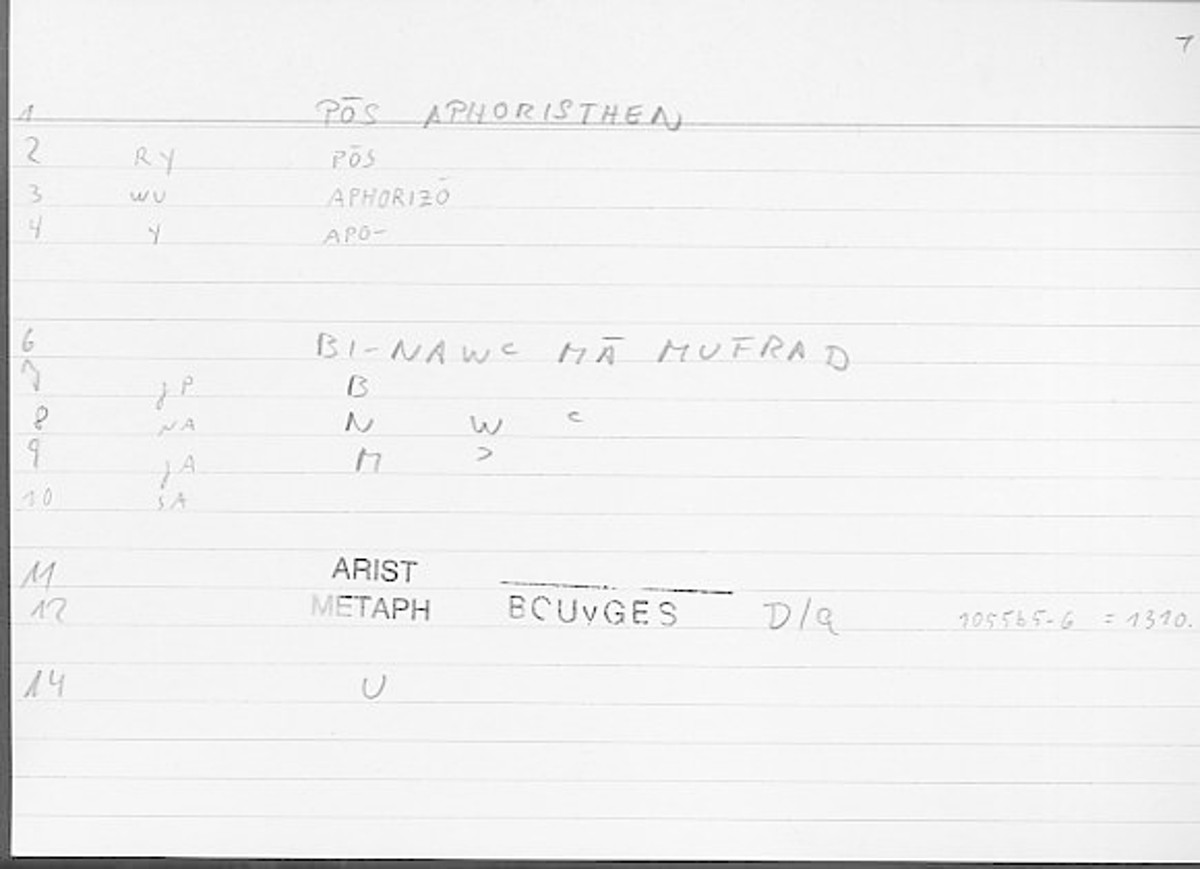 1
1 PŌS APHORISTHEN
2 RY PŌS
3 WU APHORIZŌ
4 Y APO-
6 BI-NAWC MĀ MUFRAD
7 jP B
8 NA N W C
9 jA M >
10 SA
11 ARIST
12 METAPH BCUvGES D/a 105565-6 = 1310.
14 U